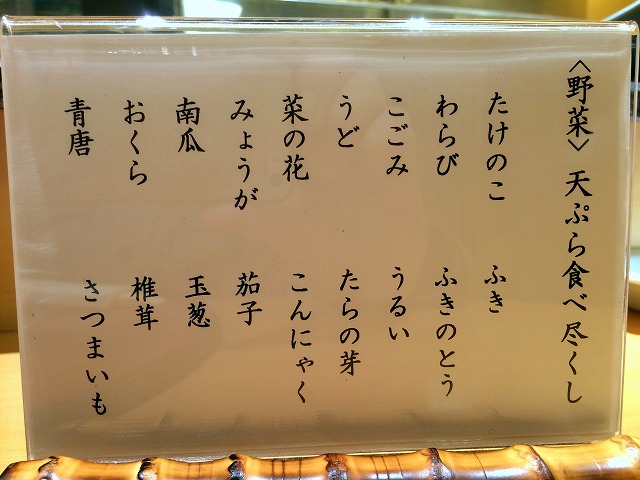 〈野菜〉天ぷら食べ尽くし
たけのこ ふき
わらび ふきのとう
こごみ うるい
うど たらの芽
菜の花 こんにゃく
みょうが 茄子
南瓜 玉葱
おくら 椎茸
青唐 さつまいも